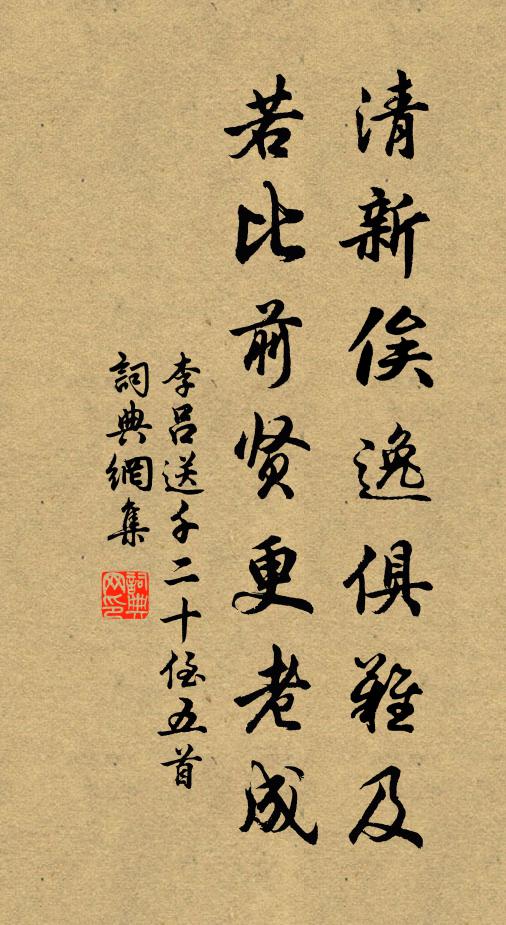 清新俊逸俱難及
若比前贤更老成
李吕送千二十侄五首
詞典網集
詞典网印